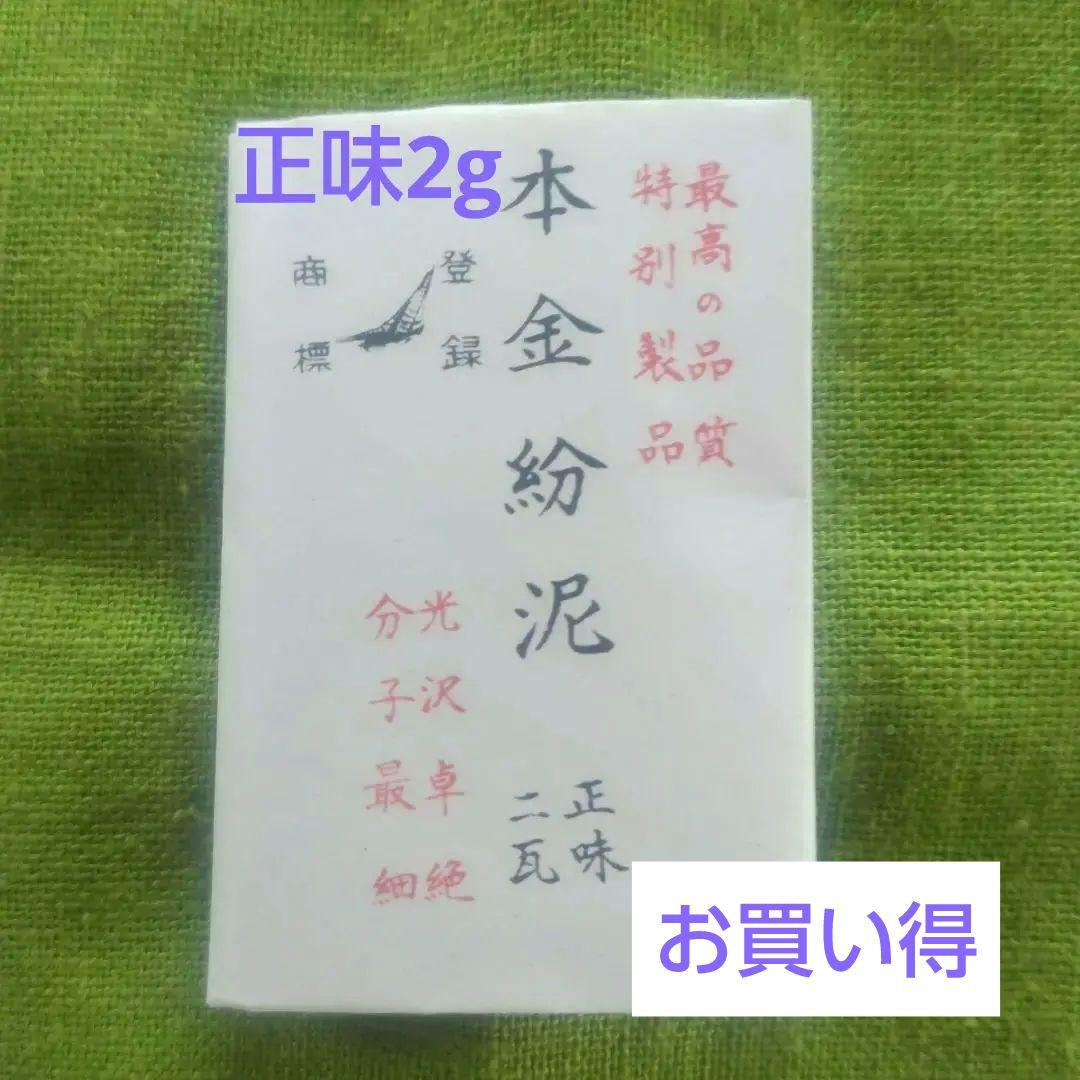 正味2g
最高の品質
特別製品
本金紛泥
正味
二瓦
登録
商標
光沢卓絶
分子最細
お買い得